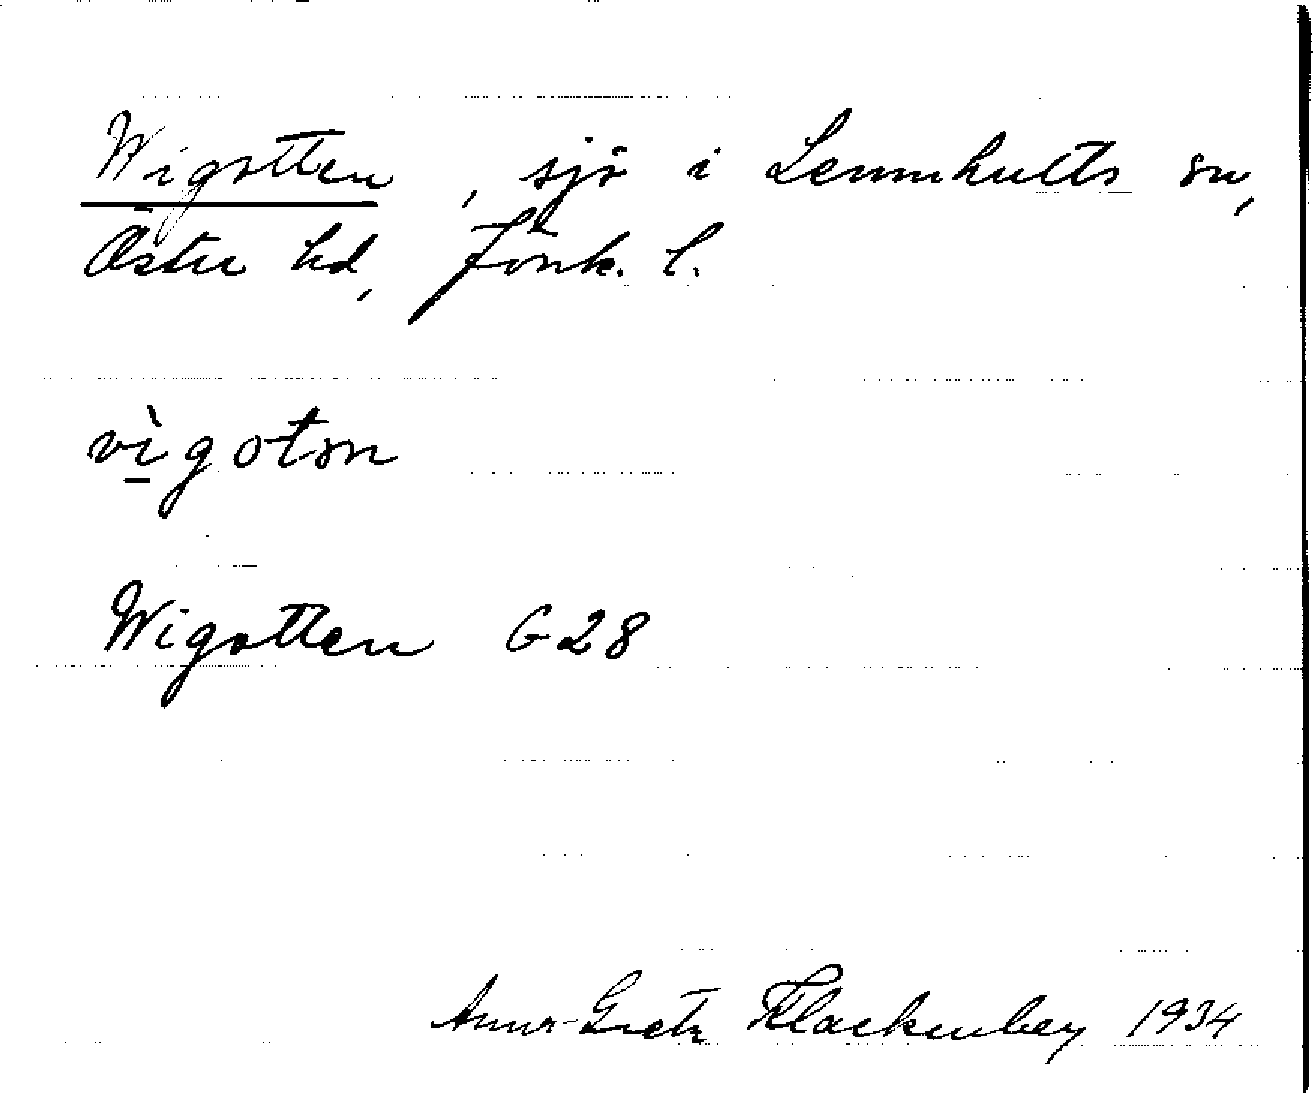 Wigotten, sjö i Lemnhults sn,
Östra hd, Jönk. l.
vìgotən
Wigotten G28
Anna-Greta Flackenberg 1934